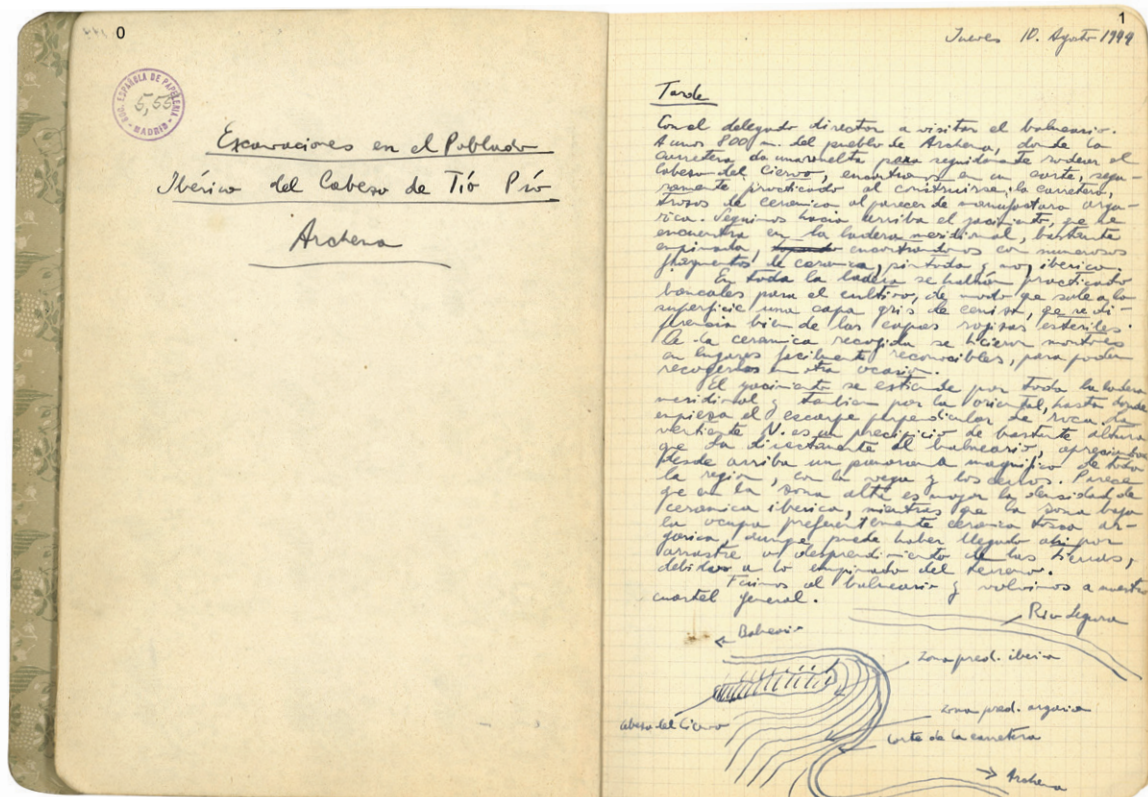 0
SOC. ESPAÑOLA DE PAPELERIA
5,55
MADRID
Excavaciones en el Poblado
Ibérico del Cabezo de Tío Pío
Archena
1
Jueves 10. Agosto 1944
Tarde
Con el delegado director a visitar el balneario.
A unos 800 m. del pueblo de Archena, donde la
carretera da una vuelta para seguidamente rodear el
Cabezo del Ciervo, encontramos en un corte, segu-
ramente practicado al construirse la carretera,
trozos de ceramica al parecer de manufactura arga-
rica. Seguimos hacia arriba el yacimiento, qe se
encuentra en la ladera meridional, bastante
empinada, encontrandonos con numerosos
fragmentos de ceramica, pintada y no, iberica.
En toda la ladera se habian practicado
bancales para el cultivo, de modo qe sale a la
superficie una capa gris de ceniza, qe se di-
ferencia bien de las capas rojizas esteriles.
De la ceramica recogida se hicieron montones
en lugares facilmente reconocibles, para poder
recogerlos en otra ocasion.
El yacimiento se estiende por toda la ladera
meridional y tambien por la oriental, hasta donde
empieza el escarpe perpendicular de roca. La
vertiente N. es un precipicio de bastante altura
que da directamente al balneario, apreciandose
desde arriba un panorama magnifico de toda
la region, con la vega y los cerros. Parece
qe en la zona alta es mayor la densidad de
ceramica iberica, mientras qe la zona baja
la ocupa preferentemente ceramica tosca ar-
garica, aunqe puede haber llegado ahi por
arrastre o desprendimiento de las tierras,
debidos a lo empinado del terreno.
Fuimos al balneario y volvimos a nuestro
cuartel general.
Rio Segura
Balneario
Zona pred. iberica
Cabezo del Ciervo
Zona pred. argarica
Corte de la carretera
Archena